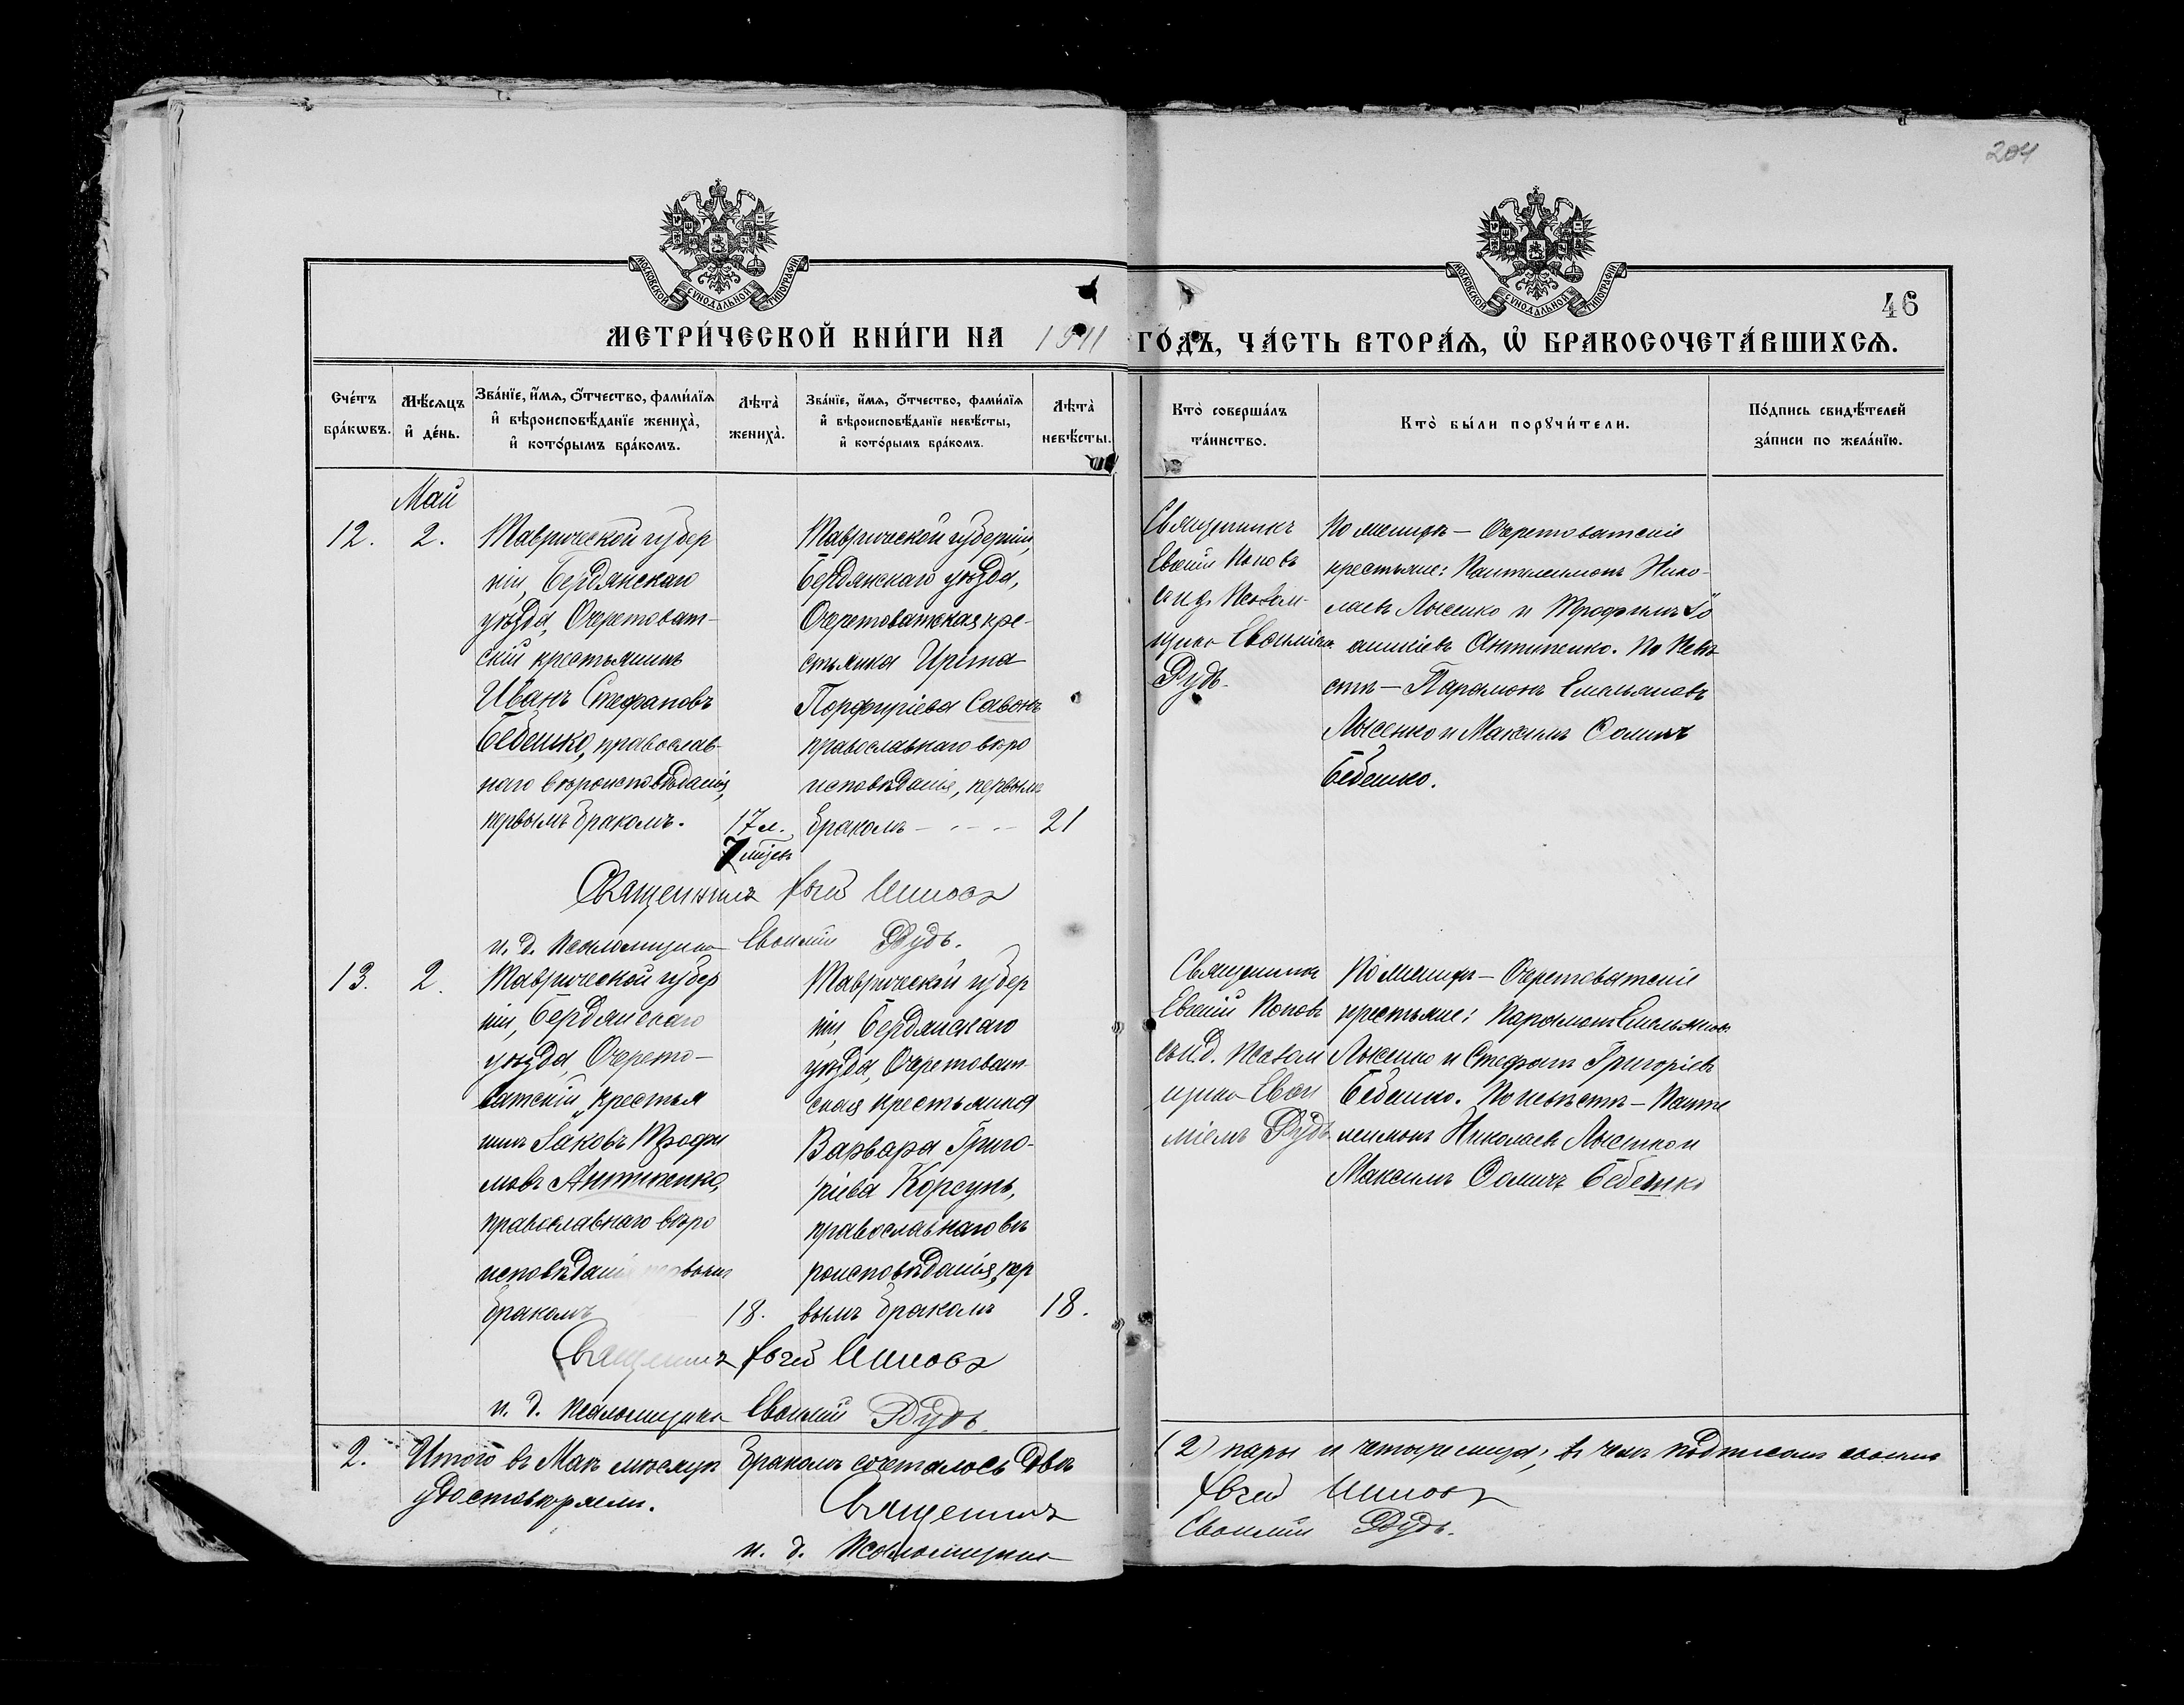 204
МОСКОВСКОЙ СѴНОДАЛЬНОЙ ТИПОГРАФІИ
МОСКОВСКОЙ СѴНОДАЛЬНОЙ ТИПОГРАФІИ
46
МЕТРИ́ЧЕСКОЙ КНИ́ГИ НА 1911 ГО́ДЪ, ЧА́СТЬ ВТОРА́Ѧ, Ѽ БРАКОСОЧЕТА́ВШИХСѦ.
Сче́тъ
бра́кѡвъ.
Мѣ́сѧцъ
и҆ де́нь.
Зва́нїе, и҆́мѧ, ѻ҆́тчество, фами́лїѧ
и҆ вѣроисповѣ́данїе жениха̀,
и҆ кото́рымъ бра́комъ.
Лѣта̀
жениха̀.
Зва́нїе, и҆́мѧ, ѻ҆́тчество, фами́лїѧ
и҆ вѣроисповѣ́данїе невѣ́сты,
и҆ кото́рымъ бра́комъ.
Лѣта̀
невѣ́сты.
Кто̀ соверша́лъ
та́инство.
Кто̀ бы́ли порꙋчи́тели.
По́дпись свидѣ́телей
за́писи по жела́нїю.
Май
12.
2.
Таврической губер
ніи, Бердянскаго
уѣзда, Очеретоват-
скій крестьянинъ
Иванъ Стефановъ
Бебешко, православ-
наго вѣроисповѣданія,
первымъ бракомъ.
17 л.
7 мцевъ
Таврической губерніи,
Бердянскаго уѣзда,
Очеретоватская кре-
стьянка Ирина
Порфиріева Савонъ
православнаго вѣро
исповѣданія, первымъ
бракомъ - - - -
21
Священникъ
Евгеній Поповъ
съ и. д. Псалом-
щика Евѳиміемъ
Рудь.
По женихѣ - Очеретоватскіе
крестьяне: Пантелеимонъ Нико-
лаевъ Лысенко и Трофимъ
Антипенко. По невѣ
стѣ - Парамонъ Емельяновъ
Лысенко и Максимъ Ѳоминъ
Бебешко.
Священникъ
и. д. Псаломщика Евѳимій Рудь.
13.
2.
Таврической губер
ніи, Бердянскаго
уѣзда, Очерето-
ватскій крестья
нинъ Іаковъ Трофи
мовъ Антипенко,
православнаго вѣро
исповѣданія первымъ
бракомъ
18.
Таврической губер
ніи, Бердянскаго
уѣзда, Очеретоват-
ская крестьянка
Варвара Григо-
ріева Корсунь,
православнаго вѣ
роисповѣданія, пер
вымъ бракомъ
18.
Священникъ
Евгеній Поповъ
съ и. д. Псалом
щика Евѳи
міемъ Рудь
По женихѣ - Очеретоватскіе
крестьяне: Парамонъ Емельяновъ
Лысенко и Стефанъ Григоріевъ
Бебешко. По невѣстѣ - Панте
леимонъ Николаевъ Лысенко и
Максимъ Ѳоминъ Бебешко
Священникъ
и. д. Псаломщика Евѳимій Рудь.
2. Итого въ Маѣ мѣсяцѣ бракомъ состоялось двѣ (2) пары и четыре лица; въ чемъ подписомъ своимъ
удостовѣряемъ.
Священникъ
и. д. Псаломщика Евѳимій Рудь.